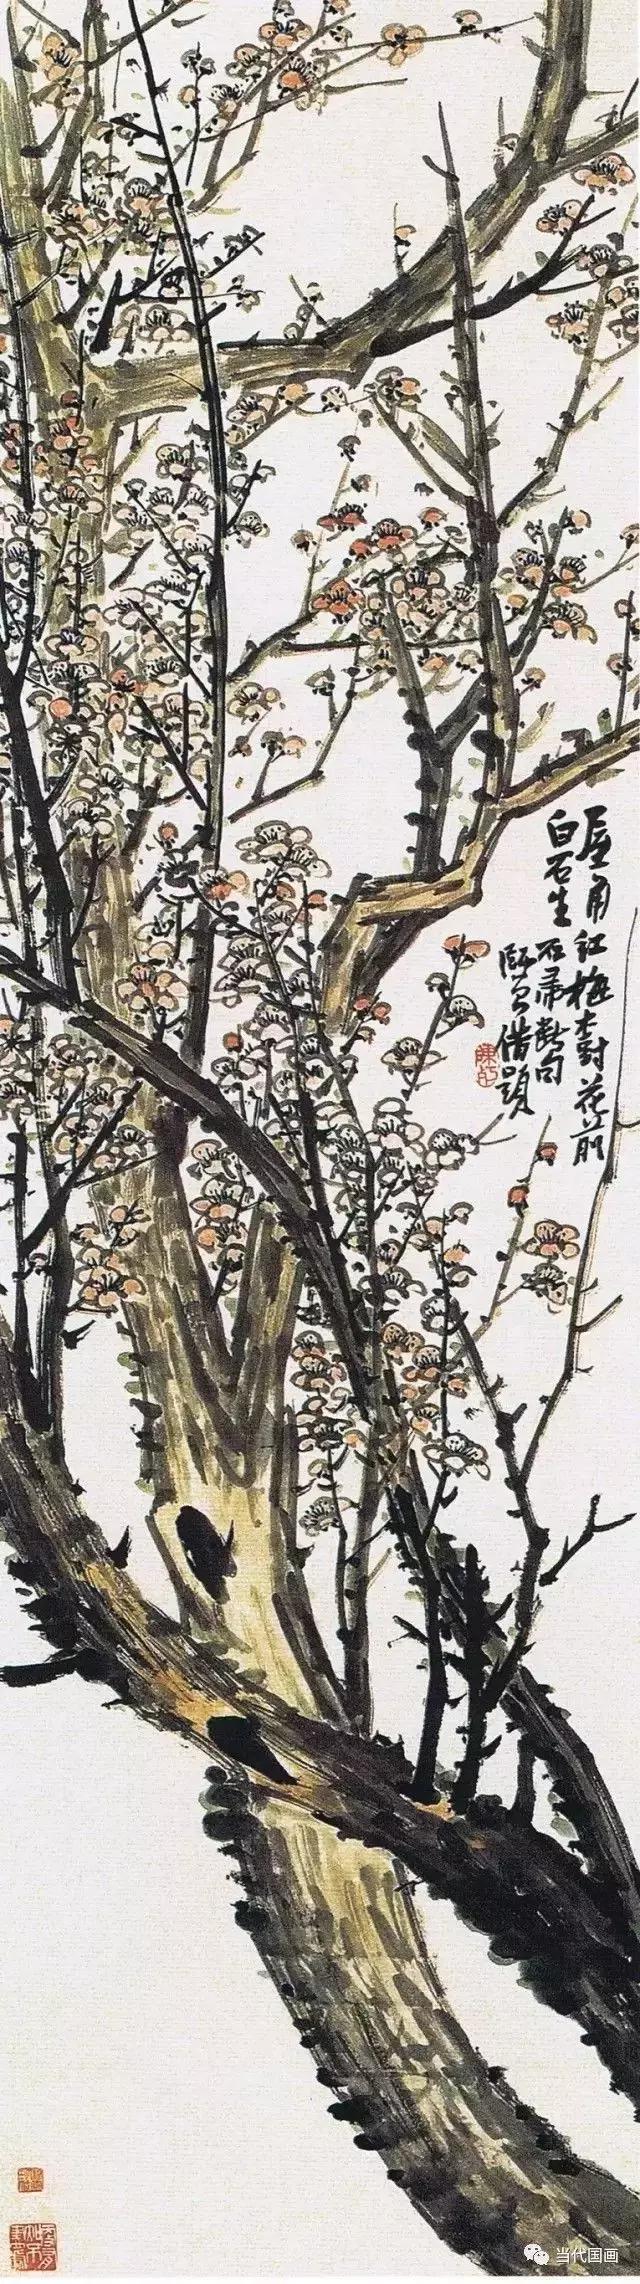 屋角红梅树花前
白石生石帚断句
师曾借题
当代国画